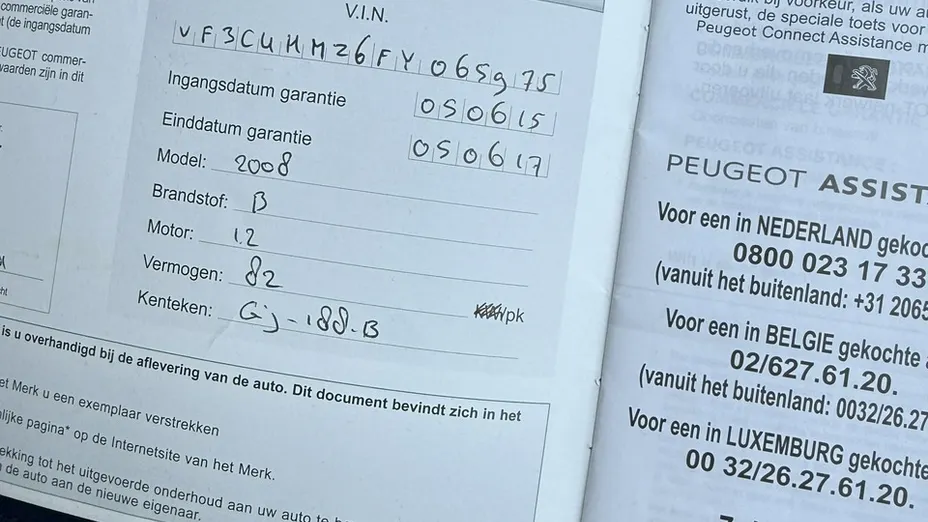 commerciële garan-
t (de ingangsdatum
EUGEOT commer-
waarden zijn in dit
V.I.N.
VF3CUHMZ6FY065975
Ingangsdatum garantie 050615
Einddatum garantie 050617
Model: 2008
Brandstof: B
Motor: 1.2
Vermogen: 82 /pk
Kenteken: GJ-188-B
is u overhandigd bij de aflevering van de auto. Dit document bevindt zich in het
et Merk u een exemplaar verstrekken
lijke pagina* op de Internetsite van het Merk.
ekking tot het uitgevoerde onderhoud aan uw auto te
de auto aan de nieuwe eigenaar.
bij voorkeur, als uw a
uitgerust, de speciale toets voor
Peugeot Connect Assistance m
PEUGEOT ASSIST
Voor een in NEDERLAND gekoc
0800 023 17 33
(vanuit het buitenland: +31 2065
Voor een in BELGIE gekochte
02/627.61.20.
(vanuit het buitenland: 0032/26.27
Voor een in LUXEMBURG gekochte
00 32/26.27.61.20.